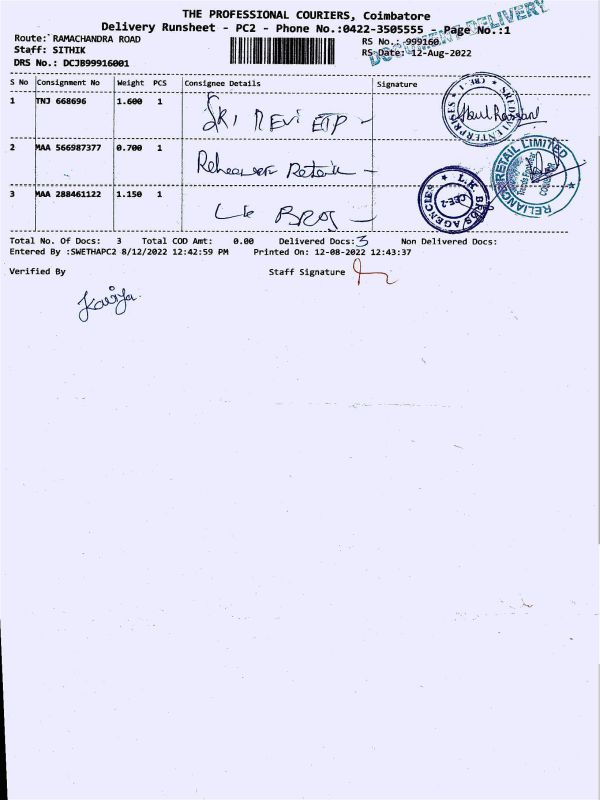 THE PROFESSIONAL COURIERS, Coimbatore
Delivery Runsheet - PC2 - Phone No.:0422-3505555 Page No.:1
DOCUMENT DELIVERY
Route: RAMACHANDRA ROAD RS No.: 999160
Staff: SITHIK RS Date: 12-Aug-2022
DRS No.: DCJB99916001
S No Consignment No Weight PCS Consignee Details Signature
1 TNJ 668696 1.600 1 SRI
2 MAA 566987377 0.700 1
RELIANCE RETAIL LIMITED
3 MAA 288461122 1.150 1 LK BROS
L.K. BROS AGENCIES CBE-2
Total No. Of Docs: 3 Total COD Amt: 0.00 Delivered Docs: 3 Non Delivered Docs:
Entered By :SWETHAPC2 8/12/2022 12:42:59 PM Printed On: 12-08-2022 12:43:37
Verified By Staff Signature